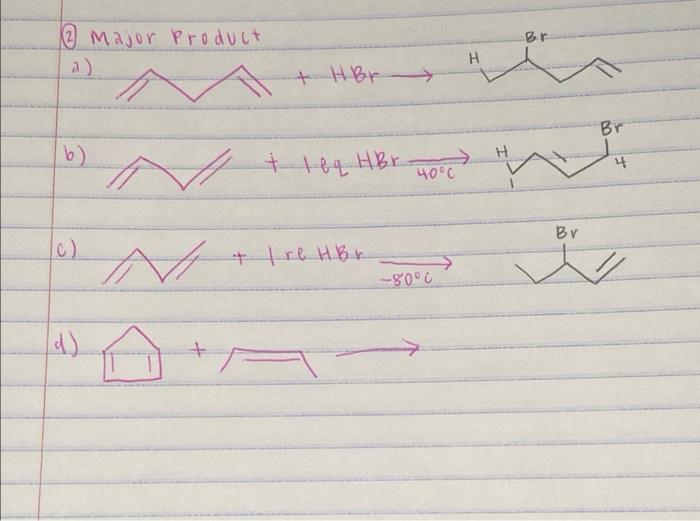 ② Major Product
a) + HBr → H Br
b) + 1 eq HBr 40°C → H 1 Br 4
c) + 1 re HBr -80°C → Br
d) + →